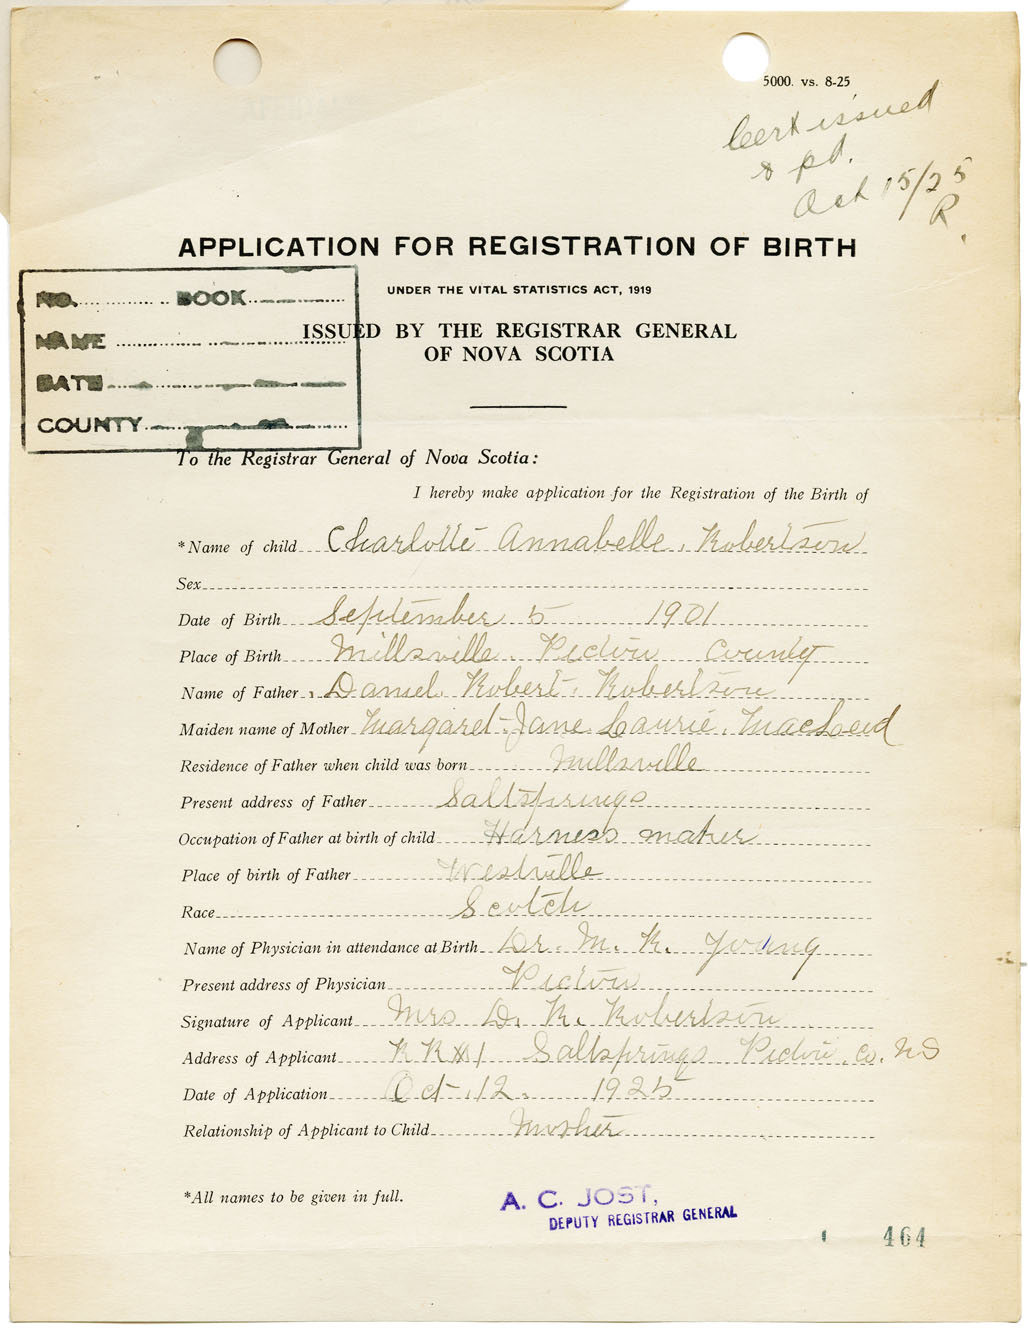 5000. vs. 8-25
Cert issued
& pd.
Oct 15/25
R.
APPLICATION FOR REGISTRATION OF BIRTH
UNDER THE VITAL STATISTICS ACT, 1919
ISSUED BY THE REGISTRAR GENERAL
OF NOVA SCOTIA
NO. BOOK
NAME
DATE
COUNTY
To the Registrar General of Nova Scotia:
I hereby make application for the Registration of the Birth of
*Name of child Charlotte Annabelle Robertson
Sex
Date of Birth September 5 1901
Place of Birth Millsville Pictou County
Name of Father Daniel Robert Robertson
Maiden name of Mother Margaret Jane Laurie MacLeod
Residence of Father when child was born Millsville
Present address of Father Saltsprings
Occupation of Father at birth of child Harness maker
Place of birth of Father Westville
Race Scotch
Name of Physician in attendance at Birth Dr. M. R. Young
Present address of Physician Pictou
Signature of Applicant Mrs D. R. Robertson
Address of Applicant R R #1 Saltsprings Pictou Co. NS
Date of Application Oct 12. 1925
Relationship of Applicant to Child Mother
*All names to be given in full.
A. C. JOST,
DEPUTY REGISTRAR GENERAL
464